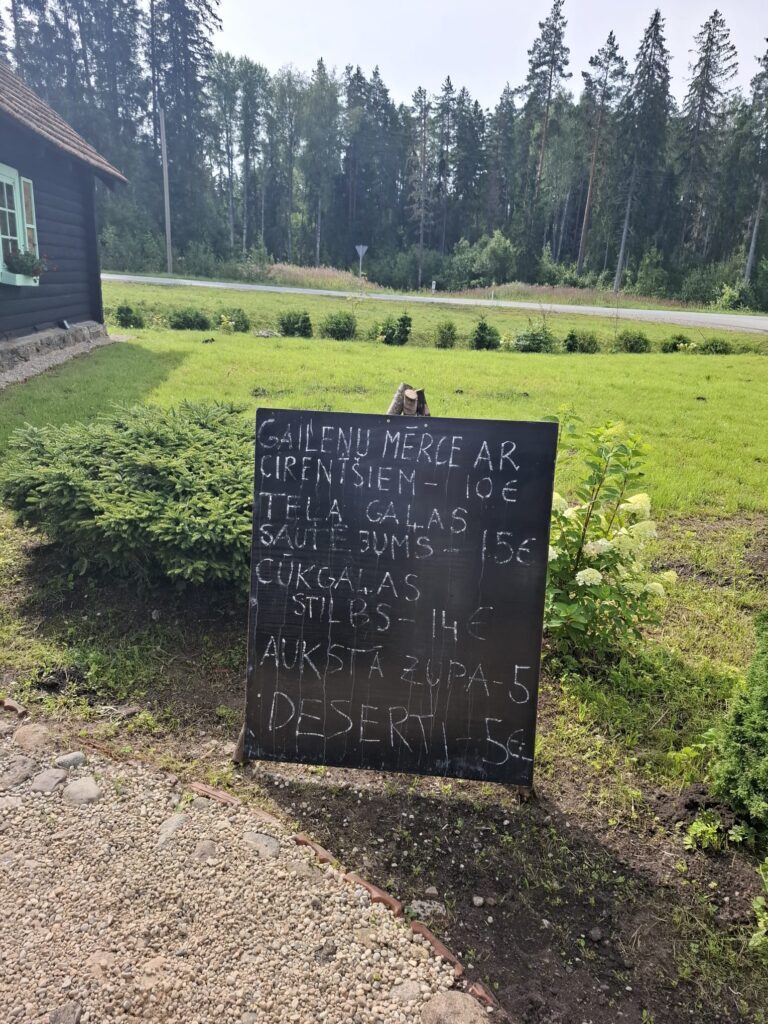 GAIĻEŅU MĒRCE AR
CIRENTŠIEM - 10€
TEĻA GAĻAS
SAUTĒJUMS - 15€
CŪKGAĻAS
STILBS - 14€
AUKSTĀ ZUPA - 5
DESERTI - 5€